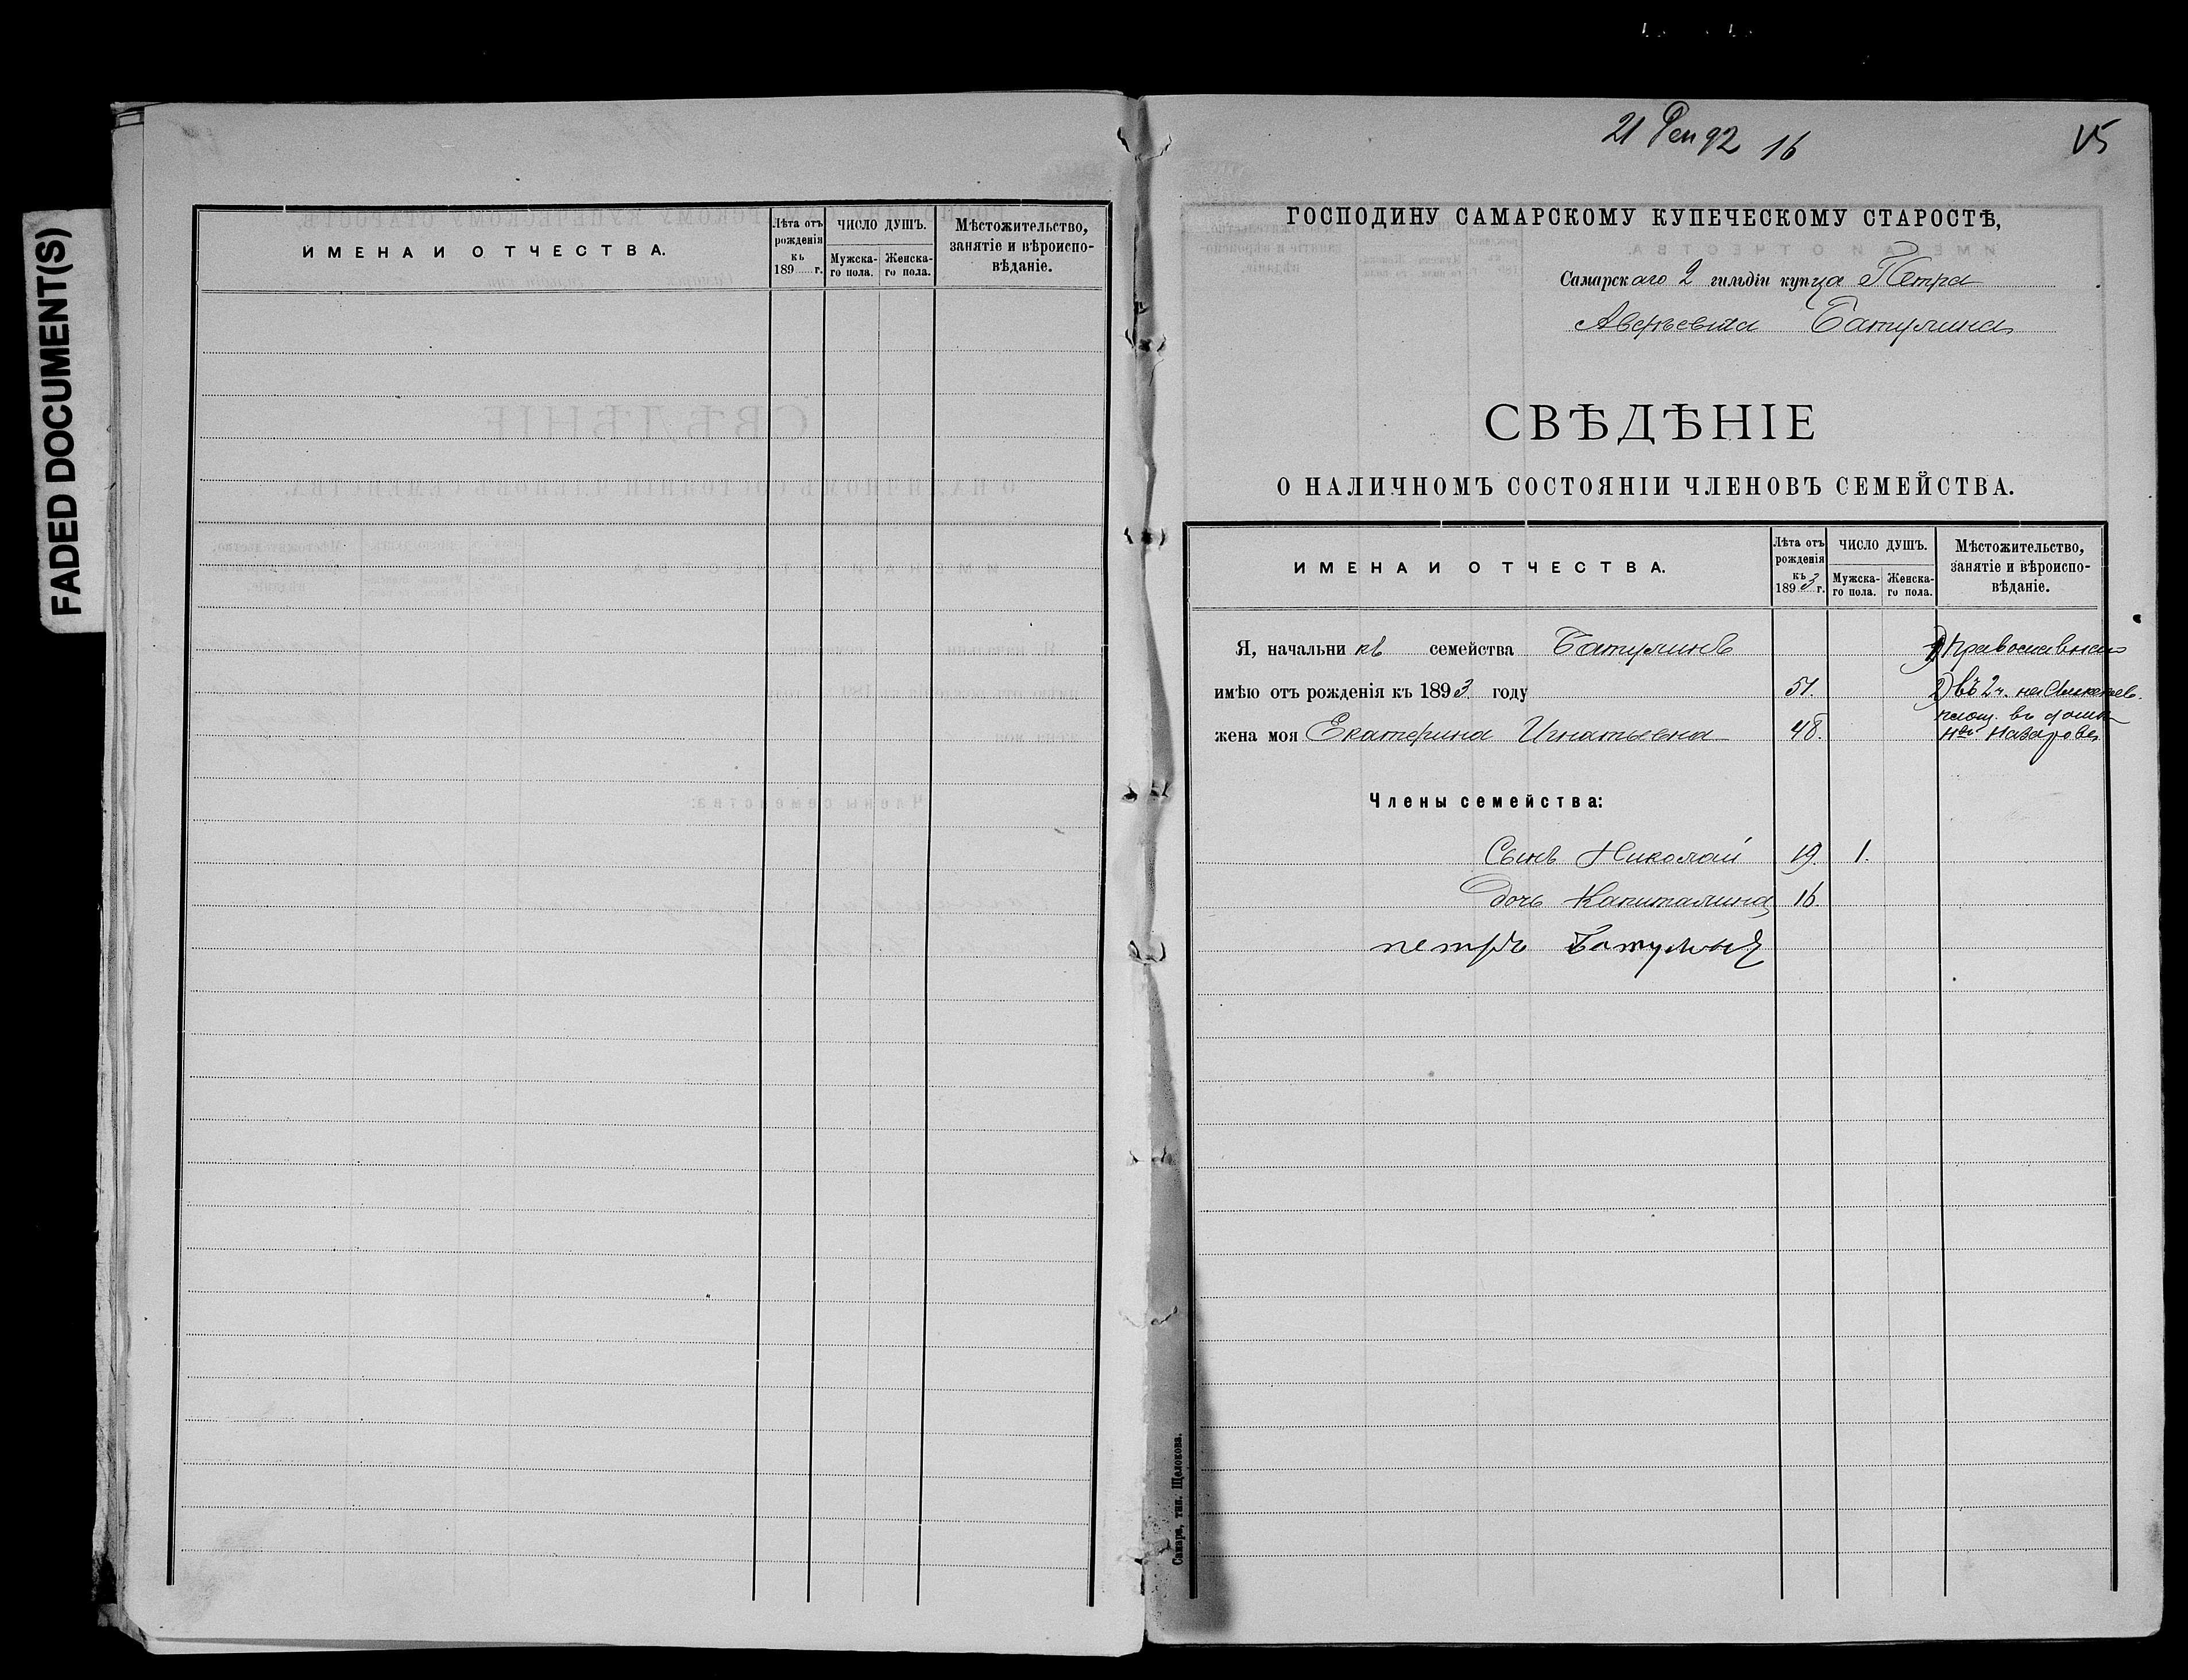 FADED DOCUMENT(S)
ИМЕНА И ОТЧЕСТВА.
Лѣта отъ рожденія къ 189 г.
ЧИСЛО ДУШЪ.
Мужска-го пола.
Женска-го пола.
Мѣстожительство, занятіе и вѣроиспо-вѣданіе.
21 92 16
15
ГОСПОДИНУ САМАРСКОМУ КУПЕЧЕСКОМУ СТАРОСТѢ,
Самарскаго 2 гильдіи купца Петра
Батулина
СВѢДѢНІЕ
О НАЛИЧНОМЪ СОСТОЯНІИ ЧЛЕНОВЪ СЕМЕЙСТВА.
ИМЕНА И ОТЧЕСТВА.
Лѣта отъ рожденія къ 1893 г.
ЧИСЛО ДУШЪ.
Мужска-го пола.
Женска-го пола.
Мѣстожительство, занятіе и вѣроиспо-вѣданіе.
Я, начальникъ семейства Батулинъ 1)
имѣю отъ рожденія къ 1893 году 51. 2) въ 2 ч. на
площ. въ домѣ
жена моя Екатерина Игнатьевна 48. Назарова
Члены семейства:
Сынъ Николай 19. 1.
дочь Капиталина 16.
петръ Батулинъ
Самара, тип. Щелокова.